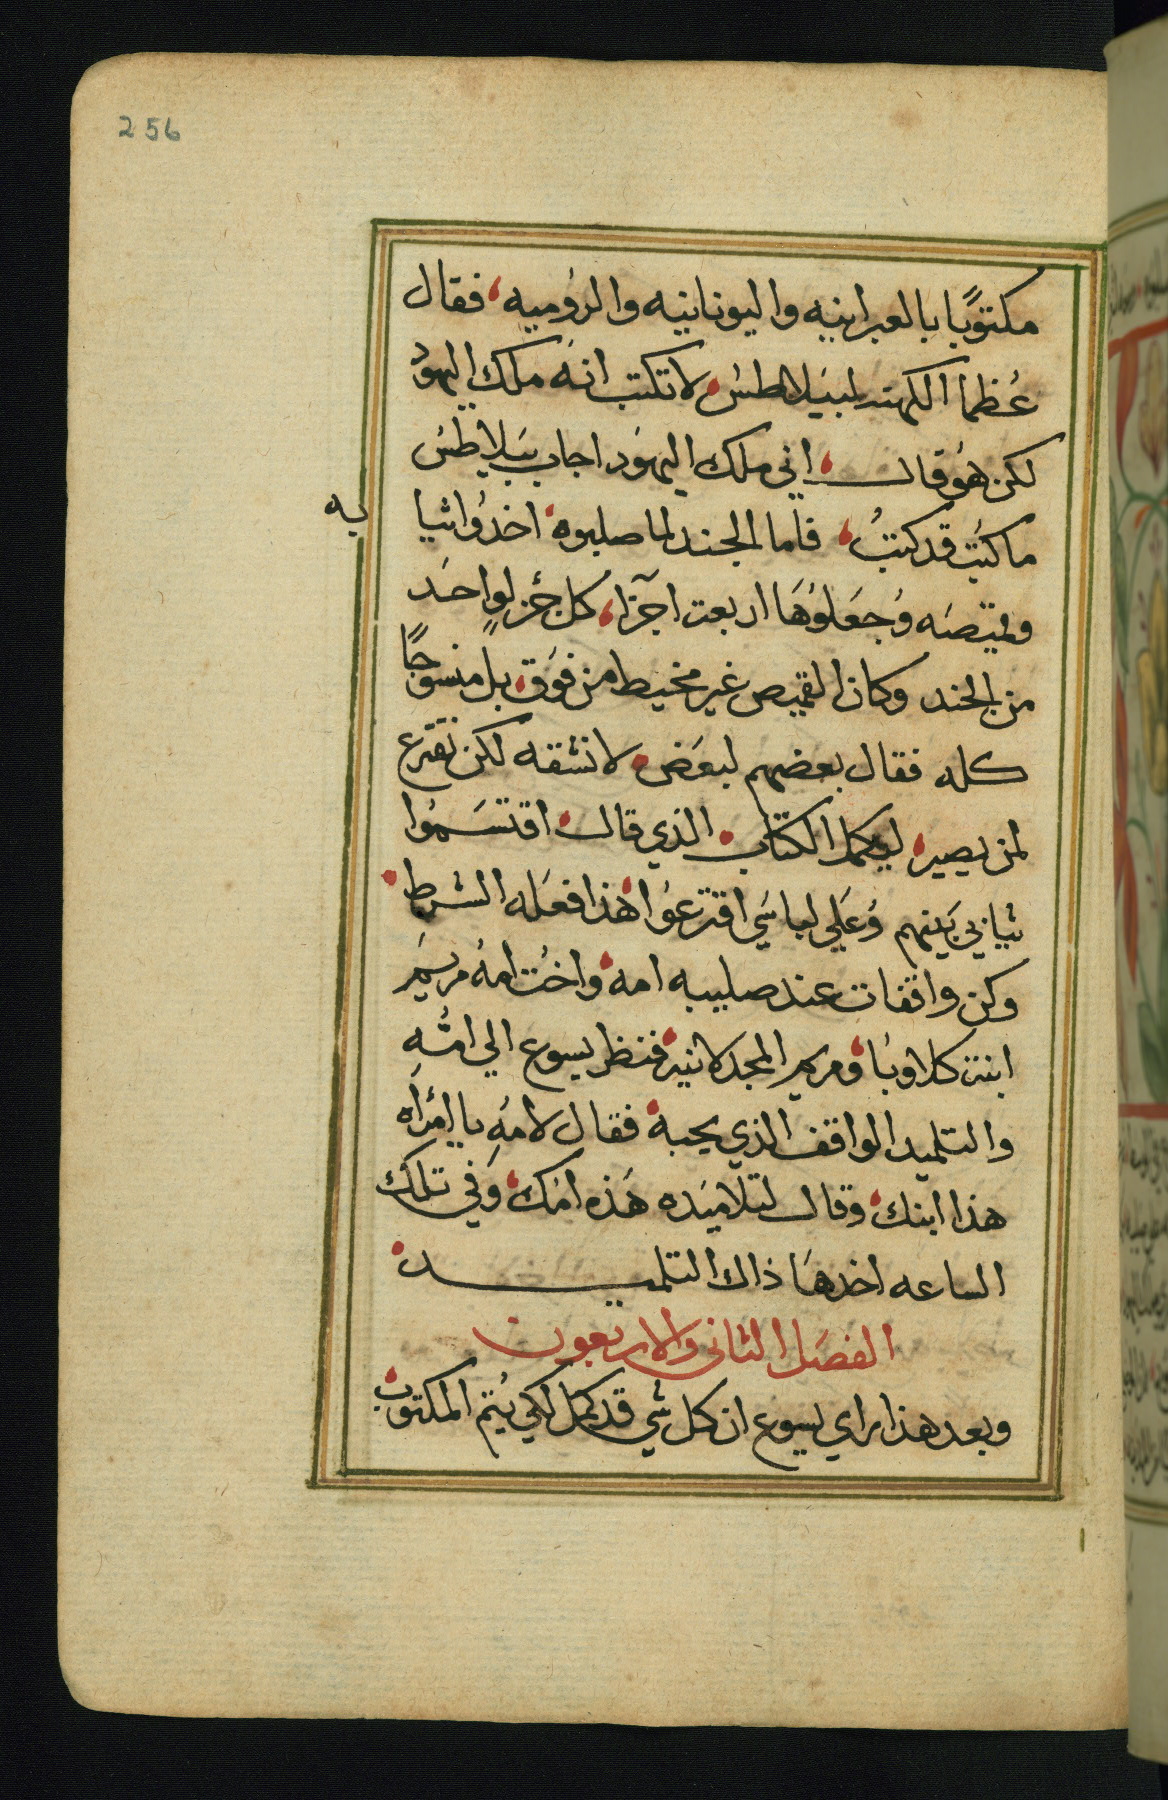 256
مكتوبًا بالعبرانيه واليونانيه والروميه، فقال
عُظما الكهنه لبيلاطس لا تكتب انه ملك اليهود
لكن هو قال اني ملك اليهود اجاب بيلاطس
ما كتبت قد كتبتُ، فاما الجند لما صلبوه اخدوا اثيا
به
وقميصه وجعلوها اربعت اجزا، كل جز لواحد
من الجند وكان القميص غير مخيط من فوق بل منسوجًا
كله فقال بعضهم لبعض لا نشقه لكن نقترع
لمن يصير ليكمل الكتاب الذي قال اقتسموا
ثيابي بينهم وعلي لباسي اقترعوا هذا فعله الشرط
وكن واقفات عند صليبه امه واخت امه مريم
ابنت كلاوبا ومريم المجدلانيه فنظر يسوع الي امه
والتلميد الواقف الذي يحبه فقال لامه يا امراه
هذا ابنك وقال لتلاميده هذه امك وفي تلك
الساعه اخدها ذاك التلميد
الفصل الثاني والاربعون
وبعد هذا راي يسوع ان كل شي قد كمل لكي يتم المكتوب